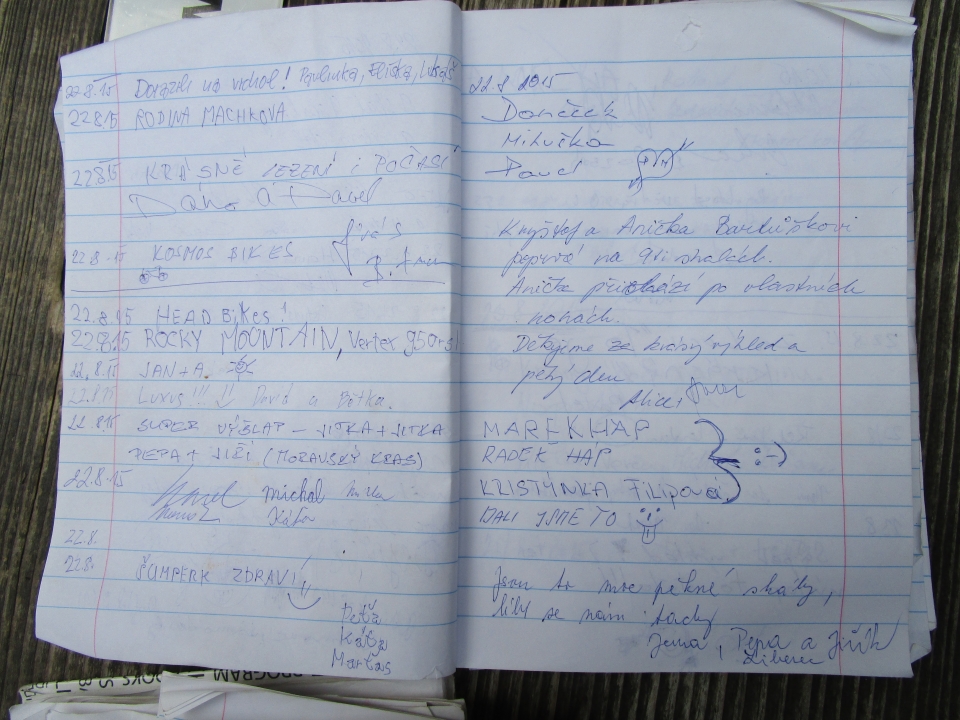 22.8.15 Dorazili na vrchol! Paulinka, Eliška, Lukáš
22.8.15 RODINA MACHKOVA
22.8.15 KRÁSNÉ LEZENÍ I POČASÍ
22.8.15 KOSMOS BIKES
22.8.15 HEAD BIKES!
22.8.15 ROCKY MOUNTAIN, Vertex 950rsl
22.8.15 JAN + A.
22.8.15 Luxus!!! David a Bětka.
22.8.15 SUPER VÝŠLAP - JITKA + JITKA
PEPA + JIŘÍ (MORAVSKÝ KRAS)
22.8.15 Karel michal
Káťa
22.8.
22.8. ŠUMPERK ZDRAVÍ
Péťa
Káťa
Marťas
22.8 2015
Daneček
Miluška
Pavel
Kryštof a Anička Bartůškovi
poprvé na skalách.
Anička přichází po vlastních
nohách.
Děkujeme za krásný výhled a
pěkný den
Alice,
MAREK HAP
RADEK HAP :-)
KRISTÝNKA FILIPOVÁ
DALI JSME TO
Jsou to moc pěkné skály,
líbí se nám tady
Jana, Pepa a Jiřík
Liberec
PROGRAM